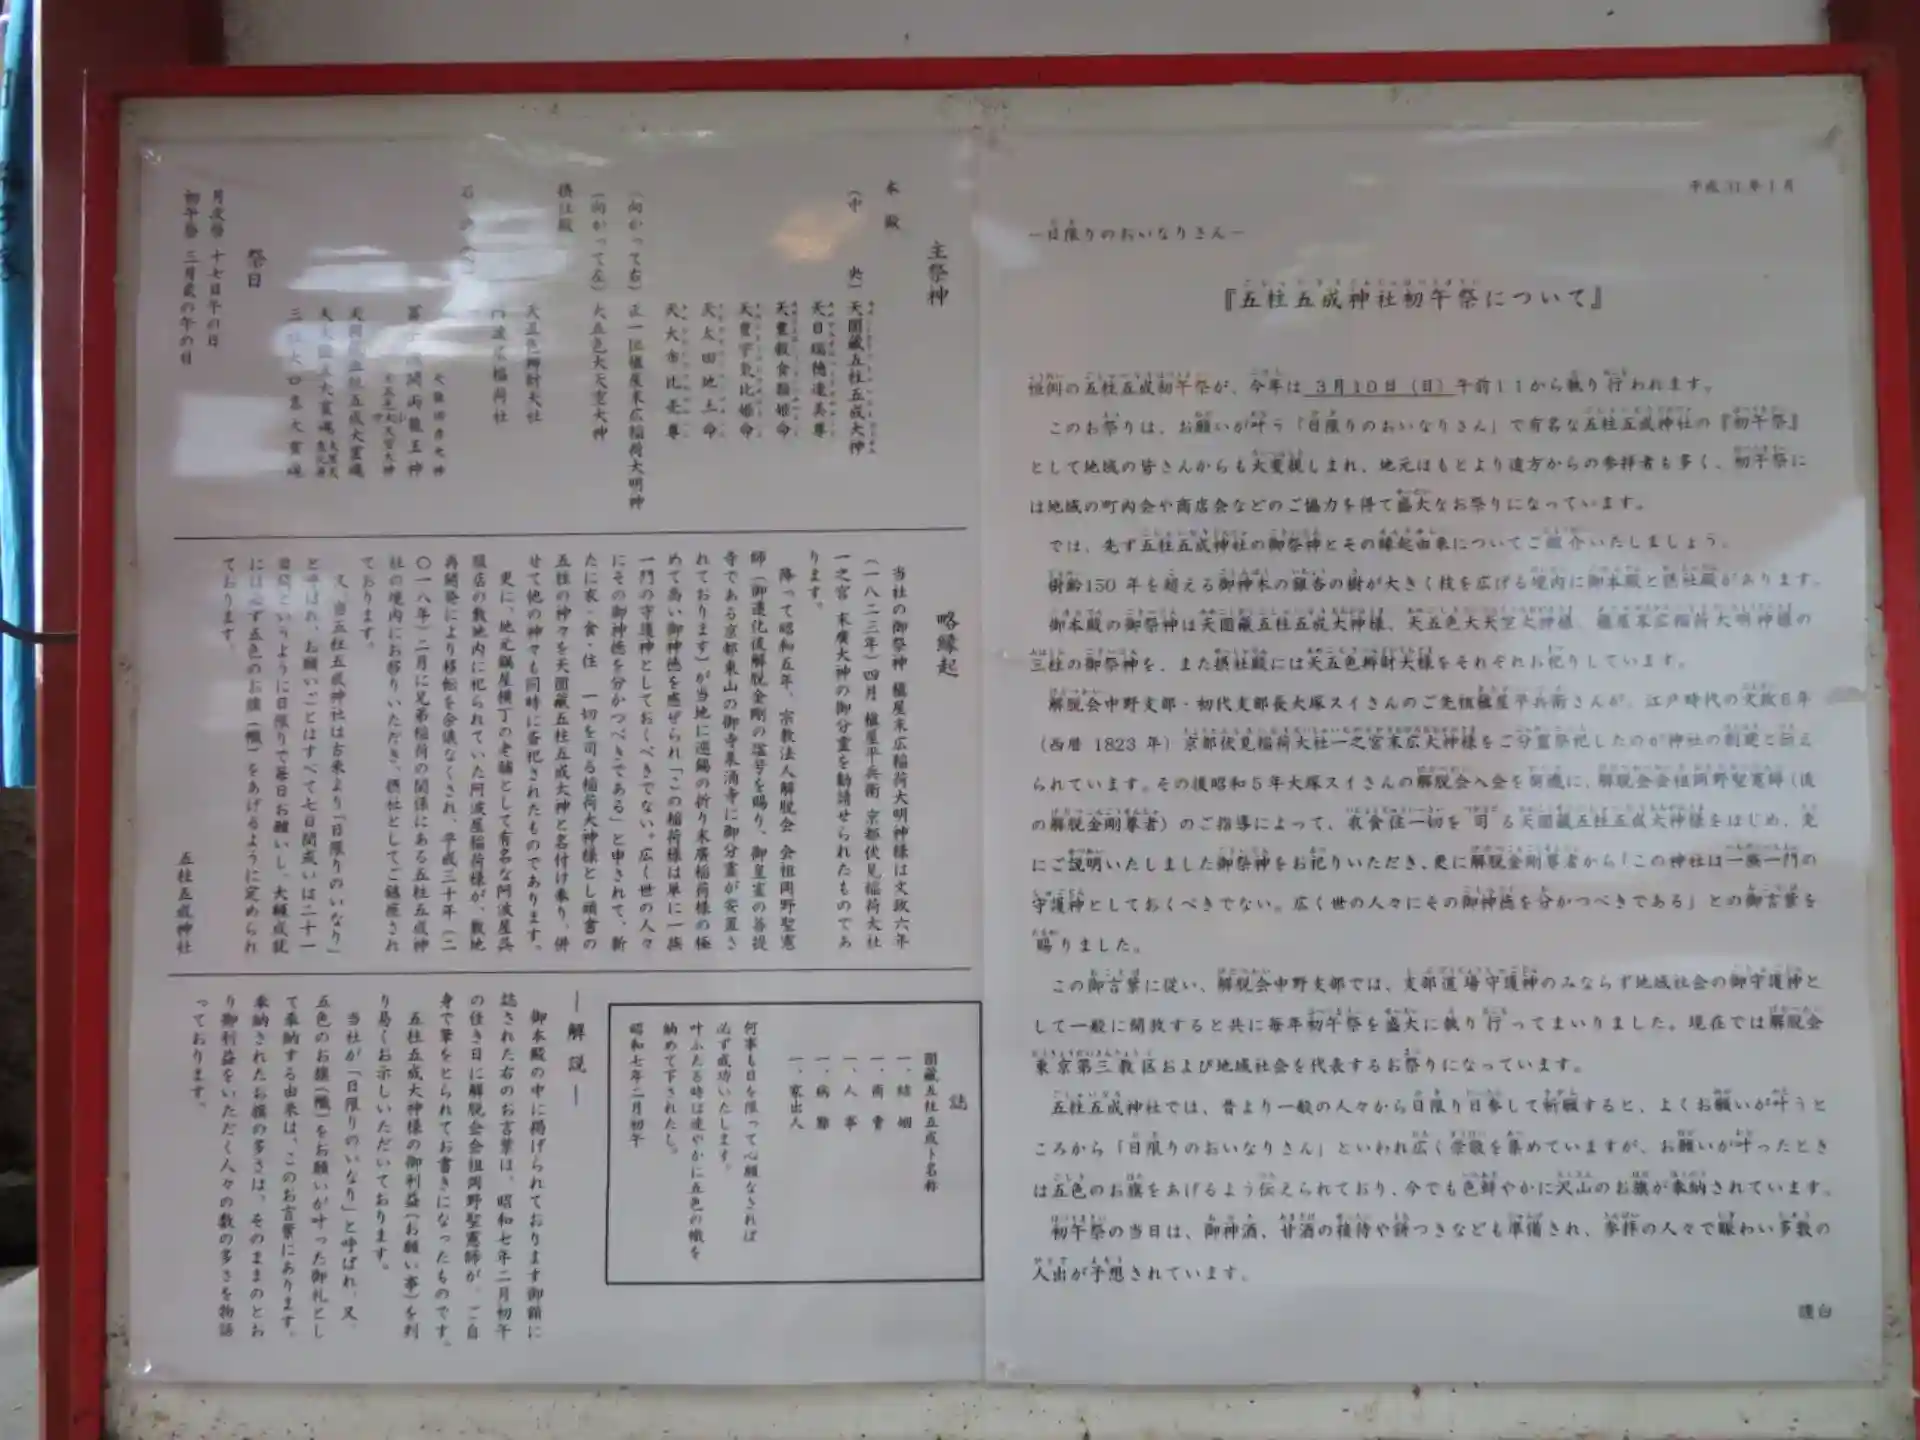 平成31年1月
－日限りのおいなりさん－
『五柱五成神社初午祭について』
恒例の五柱五成初午祭が、今年は 3月10日（日）午前11から執り行われます。
このお祭りは、お願いが叶う「日限りのおいなりさん」で有名な五柱五成神社の『初午祭』
として地域の皆さんからも大変親しまれ、地元はもとより遠方からの参拝者も多く、初午祭に
は地域の町内会や商店会などのご協力を得て盛大なお祭りになっています。
では、先ず五柱五成神社の御祭神とその縁起由来についてご紹介いたしましょう。
樹齢150年を超える御神木の銀杏の樹が大きく枝を広げる境内に御本殿と摂社殿があります。
御本殿の御祭神は天圀蔵五柱五成大神様、天五色大天空大神様、櫨屋末広稲荷大明神様の
三柱の御祭神を、また摂社殿には天五色辨財大様をそれぞれお祀りしています。
解脱会中野支部・初代支部長大塚スイさんのご先祖櫨屋平兵衛さんが、江戸時代の文政6年
（西暦 1823 年）京都伏見稲荷大社一之宮末広大神様をご分霊祭祀したのが神社の創建と伝え
られています。その後昭和5年大塚スイさんの解脱会入会を契機に、解脱会会祖岡野聖憲師（後
の解脱金剛尊者）のご指導によって、衣食住一切を司る天圀蔵五柱五成大神様をはじめ、先
にご説明いたしました御祭神をお祀りいただき、更に解脱金剛尊者から「この神社は一族一門の
守護神としておくべきでない。広く世の人々にその御神徳を分かつべきである」との御言葉を
賜りました。
この御言葉に従い、解脱会中野支部では、支部道場守護神のみならず地域社会の御守護神と
して一般に開放すると共に毎年初午祭を盛大に執り行ってまいりました。現在では解脱会
東京第三教区および地域社会を代表するお祭りになっています。
五柱五成神社では、昔より一般の人々から日限り日参して祈願すると、よくお願いが叶うと
ころから「日限りのおいなりさん」といわれ広く崇敬を集めていますが、お願いが叶ったとき
は五色のお旗をあげるよう伝えられており、今でも色鮮やかに沢山のお旗が奉納されています。
初午祭の当日は、御神酒、甘酒の接待や餅つきなども準備され、参拝の人々で賑わい多数の
人出が予想されています。
謹白
主祭神
本殿
（中央）天圀蔵五柱五成大神
天日瑞穂達美尊
天豊穀食類姫命
天豊宇気比姫命
天太田地土命
天大市比売尊
（向かって右）正一位櫨屋末広稲荷大明神
（向かって左）天五色大天空大神
摂社殿
天五色辨財大社
阿波屋稲荷社
祭日
月次祭 十七日午の日
初午祭 三月或の午の日
略縁起
当社の御祭神 櫨屋末広稲荷大明神様は文政六年
（一八二三年）四月 櫨屋平兵衛 京都伏見稲荷大社
一之宮 末廣大神の御分霊を勧請せられたものであ
ります。
降って昭和五年、宗教法人解脱会 会祖岡野聖憲
師（御遷化後解脱金剛の謚号を賜り、御皇室の菩提
寺である京都東山の御寺泉涌寺に御分霊が安置さ
れております）が当地に巡錫の折り末廣稲荷様の極
めて高い御神徳を感ぜられ「この稲荷様は単に一族
一門の守護神としておくべきでない。広く世の人々
にその御神徳を分かつべきである」と申されて、新
たに衣・食・住 一切を司る稲荷大神様とし頭書の
五柱の神々を天圀蔵五柱五成大神と名付け奉り、併
せて他の神々も同時に斎祀されたものであります。
更に、地元鍋屋横丁の老舗として有名な阿波屋呉
服店の敷地内に祀られていた阿波屋稲荷様が、敷地
再開発により移転を余儀なくされ、平成三十年（二
〇一八年）二月に兄弟稲荷の関係にある五柱五成神
社の境内にお移りいただき、摂社としてご鎮座され
ております。
又、当五柱五成神社は古来より「日限りのいなり」
と呼ばれ、お願いごとはすべて七日間或いは二十一
日間というように日限りで毎日お願いし、大願成就
には必ず五色のお旗（幟）をあげるように定められ
ております。
五柱五成神社
誌
圀蔵五柱五成ト名称
一、結姻
一、商賣
一、人事
一、病難
一、家出人
何事も日を限って心願なされば
必ず成功いたします。
叶ふたる時は速やかに五色の幟を
納めて下されたし。
昭和七年二月初午
―解説―
御本殿の中に掲げられております御額に
誌された右のお言葉は、昭和七年二月初午
の佳き日に解脱会会祖岡野聖憲師が、ご自
身で筆をとられてお書きになったものです。
五柱五成大神様の御利益（お願い事）を判
り易くお示しいただいております。
当社が「日限りのいなり」と呼ばれ、又、
五色のお旗（幟）をお願いが叶った御礼とし
て奉納する由来は、このお言葉にあります。
奉納されたお旗の多さは、そのままのとお
り御利益をいただく人々の数の多さを物語
っております。